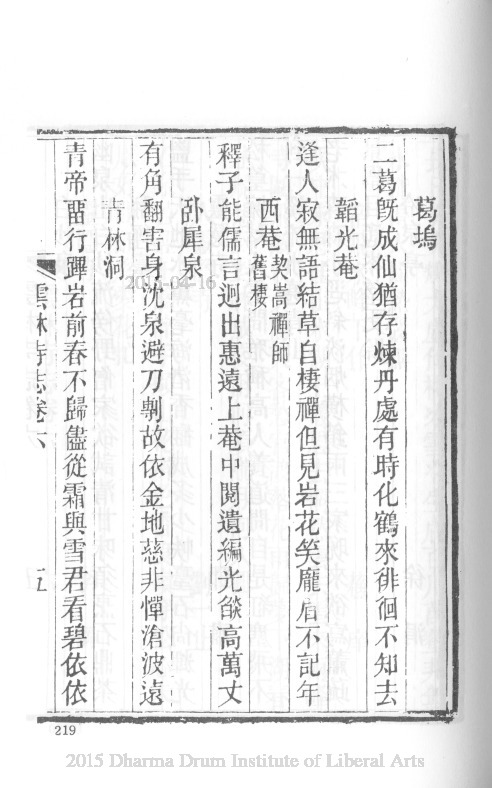 葛塢
二葛旣成仙猶存煉丹處有時化鶴來徘徊不知去
韜光菴
逢人寂無語結草自棲禪但見岩花笑龐眉不記年
西菴契嵩禪師舊棲
釋子能儒言迥出惠遠上菴中閱遺編光燄高萬丈
臥犀泉
有角翻害身沈泉避刀剸故依金地慈非憚滄波遠
青林洞
青帝畱行蹕岩前春不歸儘從霜與雪君看碧依依
雲林寺志卷六
五
219
2015 Dharma Drum Institute of Liberal Arts